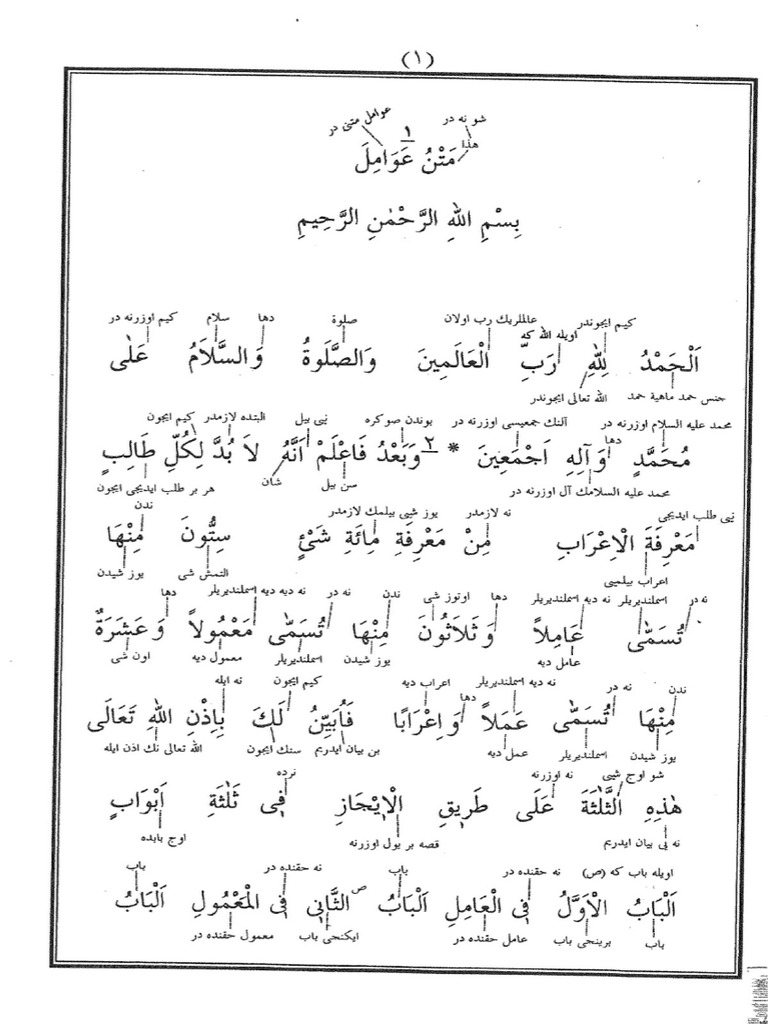 (١)
شو نه در عوامل متنى در
هذا ١
مَتْنُ عَوَامِلَ
بِسْمِ اللهِ الرَّحْمٰنِ الرَّحِيمِ
كيم ايچوندر عالملرك رب اولان صلوة دها سلام كيم اوزرنه در
اويله الله كه
اَلْحَمْدُ لِلّٰهِ رَبِّ الْعَالَمِينَ وَالصَّلٰوةُ وَالسَّلَامُ عَلٰى
جنس حمد ماهية حمد الله تعالى ايچوندر
محمد عليه السلام اوزرنه در آلنك جمعيسى اوزرنه در بوندن صوكره نيى بيل البتده لازمدر كيم ايچون
دها
مُحَمَّدٍ وَآلِهِ اَجْمَعِينَ * ٢ وَبَعْدُ فَاعْلَمْ اَنَّهُ لَا بُدَّ لِكُلِّ طَالِبٍ
محمد عليه السلامك آل اوزرنه در سن بيل شان هر بر طلب ايديجى ايچون
نيى طلب ايديجى نه لازمدر يوز شيى بيلمك لازمدر ندن
مَعْرِفَةَ الْاِعْرَابِ مِنْ مَعْرِفَةِ مِائَةِ شَئْءٍ سِتُّونَ مِنْهَا
اعراب بيلميى التمش شى يوز شيدن
نه در اسملنديريلر نه ديه اسملنديريلر دها اوتوز شى ندن نه در نه ديه اسملنديريلر دها
تُسَمّٰى عَامِلاً وَثَلَاثُونَ مِنْهَا تُسَمّٰى مَعْمُولاً وَعَشَرَةٌ
عامل ديه يوز شيدن اسملنديريلر معمول ديه اون شى
ندن نه در نه ديه اسملنديريلر اعراب ديه كيم ايچون نه ايله
دها
مِنْهَا تُسَمّٰى عَمَلاً وَاِعْرَابًا فَاُبَيِّنُ لَكَ بِاِذْنِ اللهِ تَعَالَى
يوز شيدن اسملنديريلر عمل ديه بن بيان ايدريم سنك ايچون الله تعالى نك اذن ايله
شو اوچ شيى نه اوزرنه نرده
هٰذِهِ الثَّلٰثَةَ عَلَى طَرِيقِ الْاِيْجَازِ فِى ثَلٰثَةِ اَبْوَابٍ
نه يى بيان ايدريم قصه بر يول اوزرنه اوچ بابده
اويله باب كه (ص) نه حقنده در باب نه حقنده در باب
اَلْبَابُ الْاَوَّلُ فِى الْعَامِلِ اَلْبَابُ الثَّانِى ص فِى الْمَعْمُولِ اَلْبَابُ
باب برينجى باب عامل حقنده در ايكنجى باب معمول حقنده در